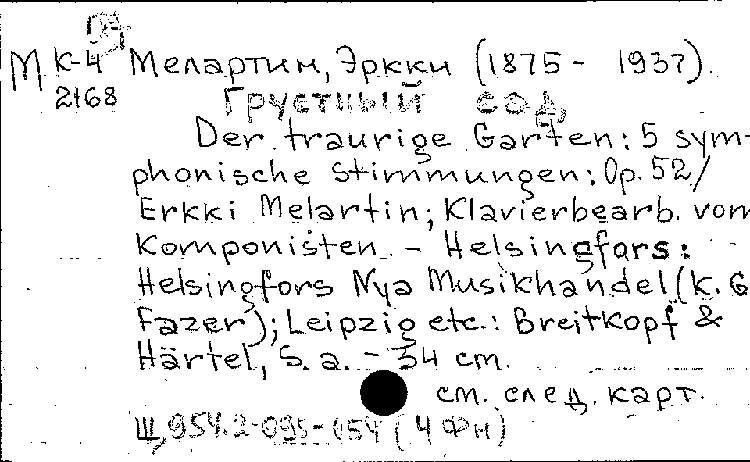 М К-4 Мелартин, Эркки (1875 - 1937).
2168 Грустный сад
Der traurige Garten: 5 sym-
phonische Stimmungen: Op. 52/
Erkki Melartin; Klavierbearb. vom
Komponisten. - Helsingfors:
Helsingfors Nya Musikhandel (K. G
Fazer); Leipzig etc.: Breitkopf &
Härtel, S. a. - 34 cm.
см. след. карт.
Щ954.2-095-154 (4 Фн)